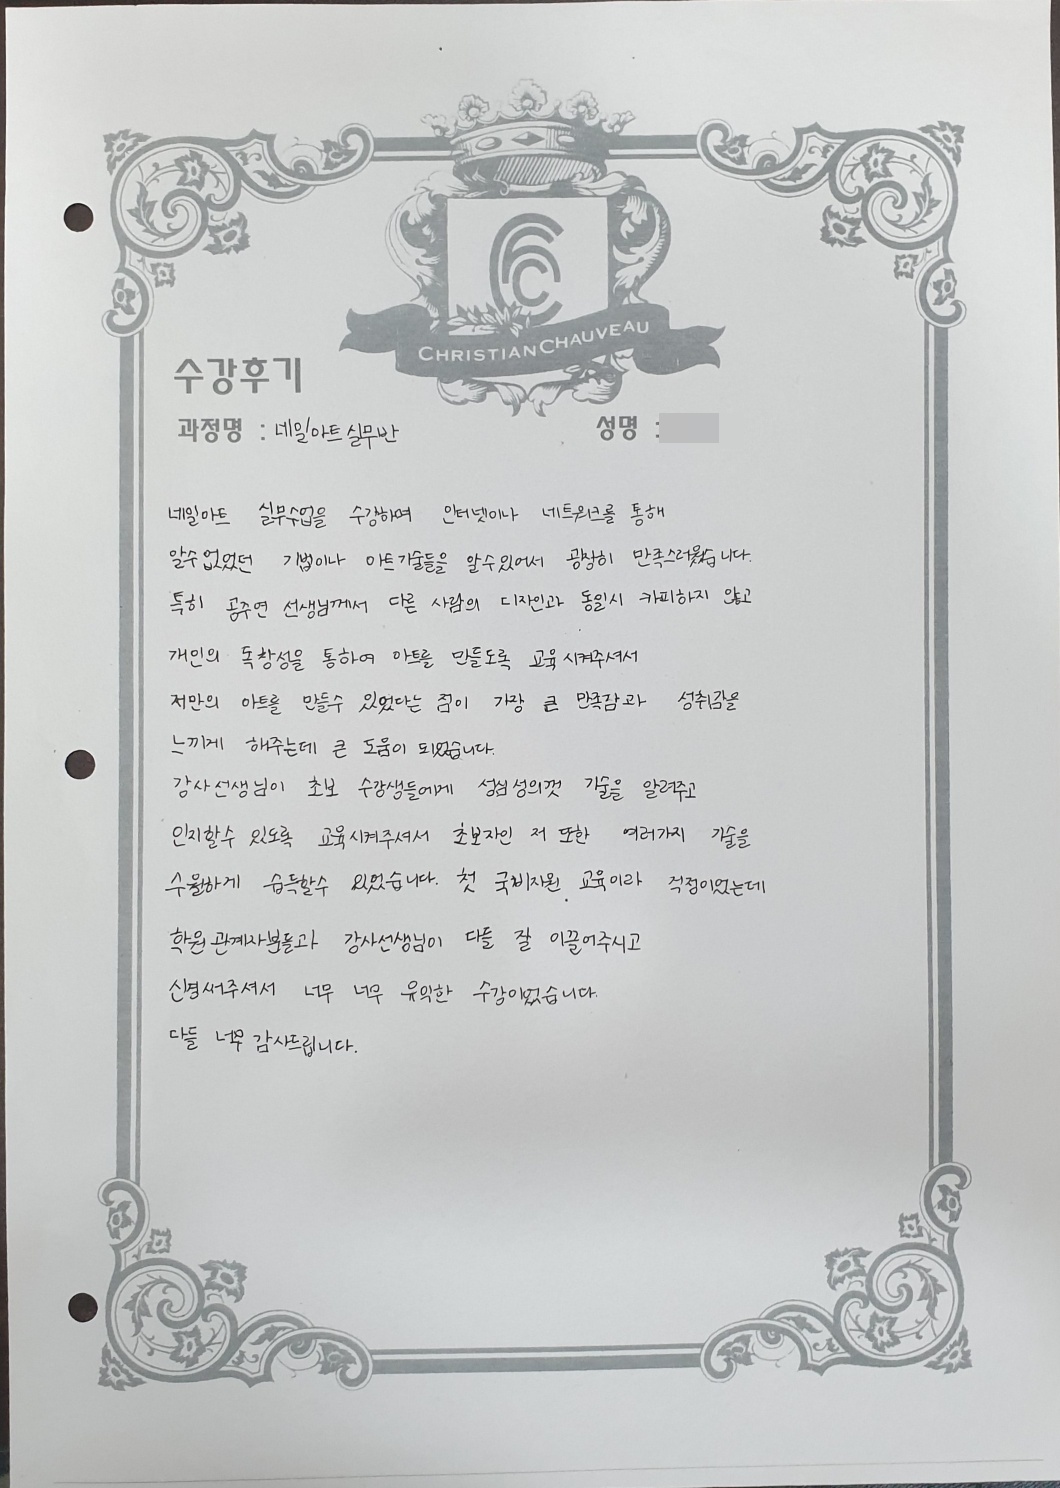 CHRISTIAN CHAUVEAU
수강후기
과정명 : 네일아트 실무반
성명 :
네일아트 실무수업을 수강하며 인터넷이나 네트워크를 통해
알수 없었던 기법이나 아트기술들을 알수있어서 굉장히 만족스러웠습니다.
특히 공주연 선생님께서 다른 사람의 디자인과 동일시 카피하지 않고
개인의 독창성을 통하여 아트를 만들도록 교육시켜주셔서
저만의 아트를 만들수 있었다는 점이 가장 큰 만족감과 성취감을
느끼게 해주는데 큰 도움이 되었습니다.
강사선생님이 초보 수강생들에게 성심성의껏 기술을 알려주고
인지할수 있도록 교육시켜주셔서 초보자인 저 또한 여러가지 기술을
수월하게 습득할수 있었습니다. 첫 국비지원 교육이라 걱정이었는데
학원 관계자분들과 강사선생님이 다들 잘 이끌어주시고
신경써주셔서 너무 너무 유익한 수강이었습니다.
다들 너무 감사드립니다.